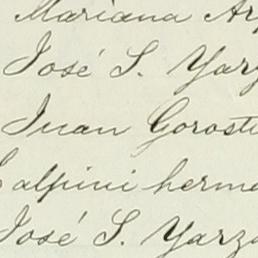 Mariana Ar
José S. Yarz
Juan Gorosti
Calpini herma
José S. Yarza